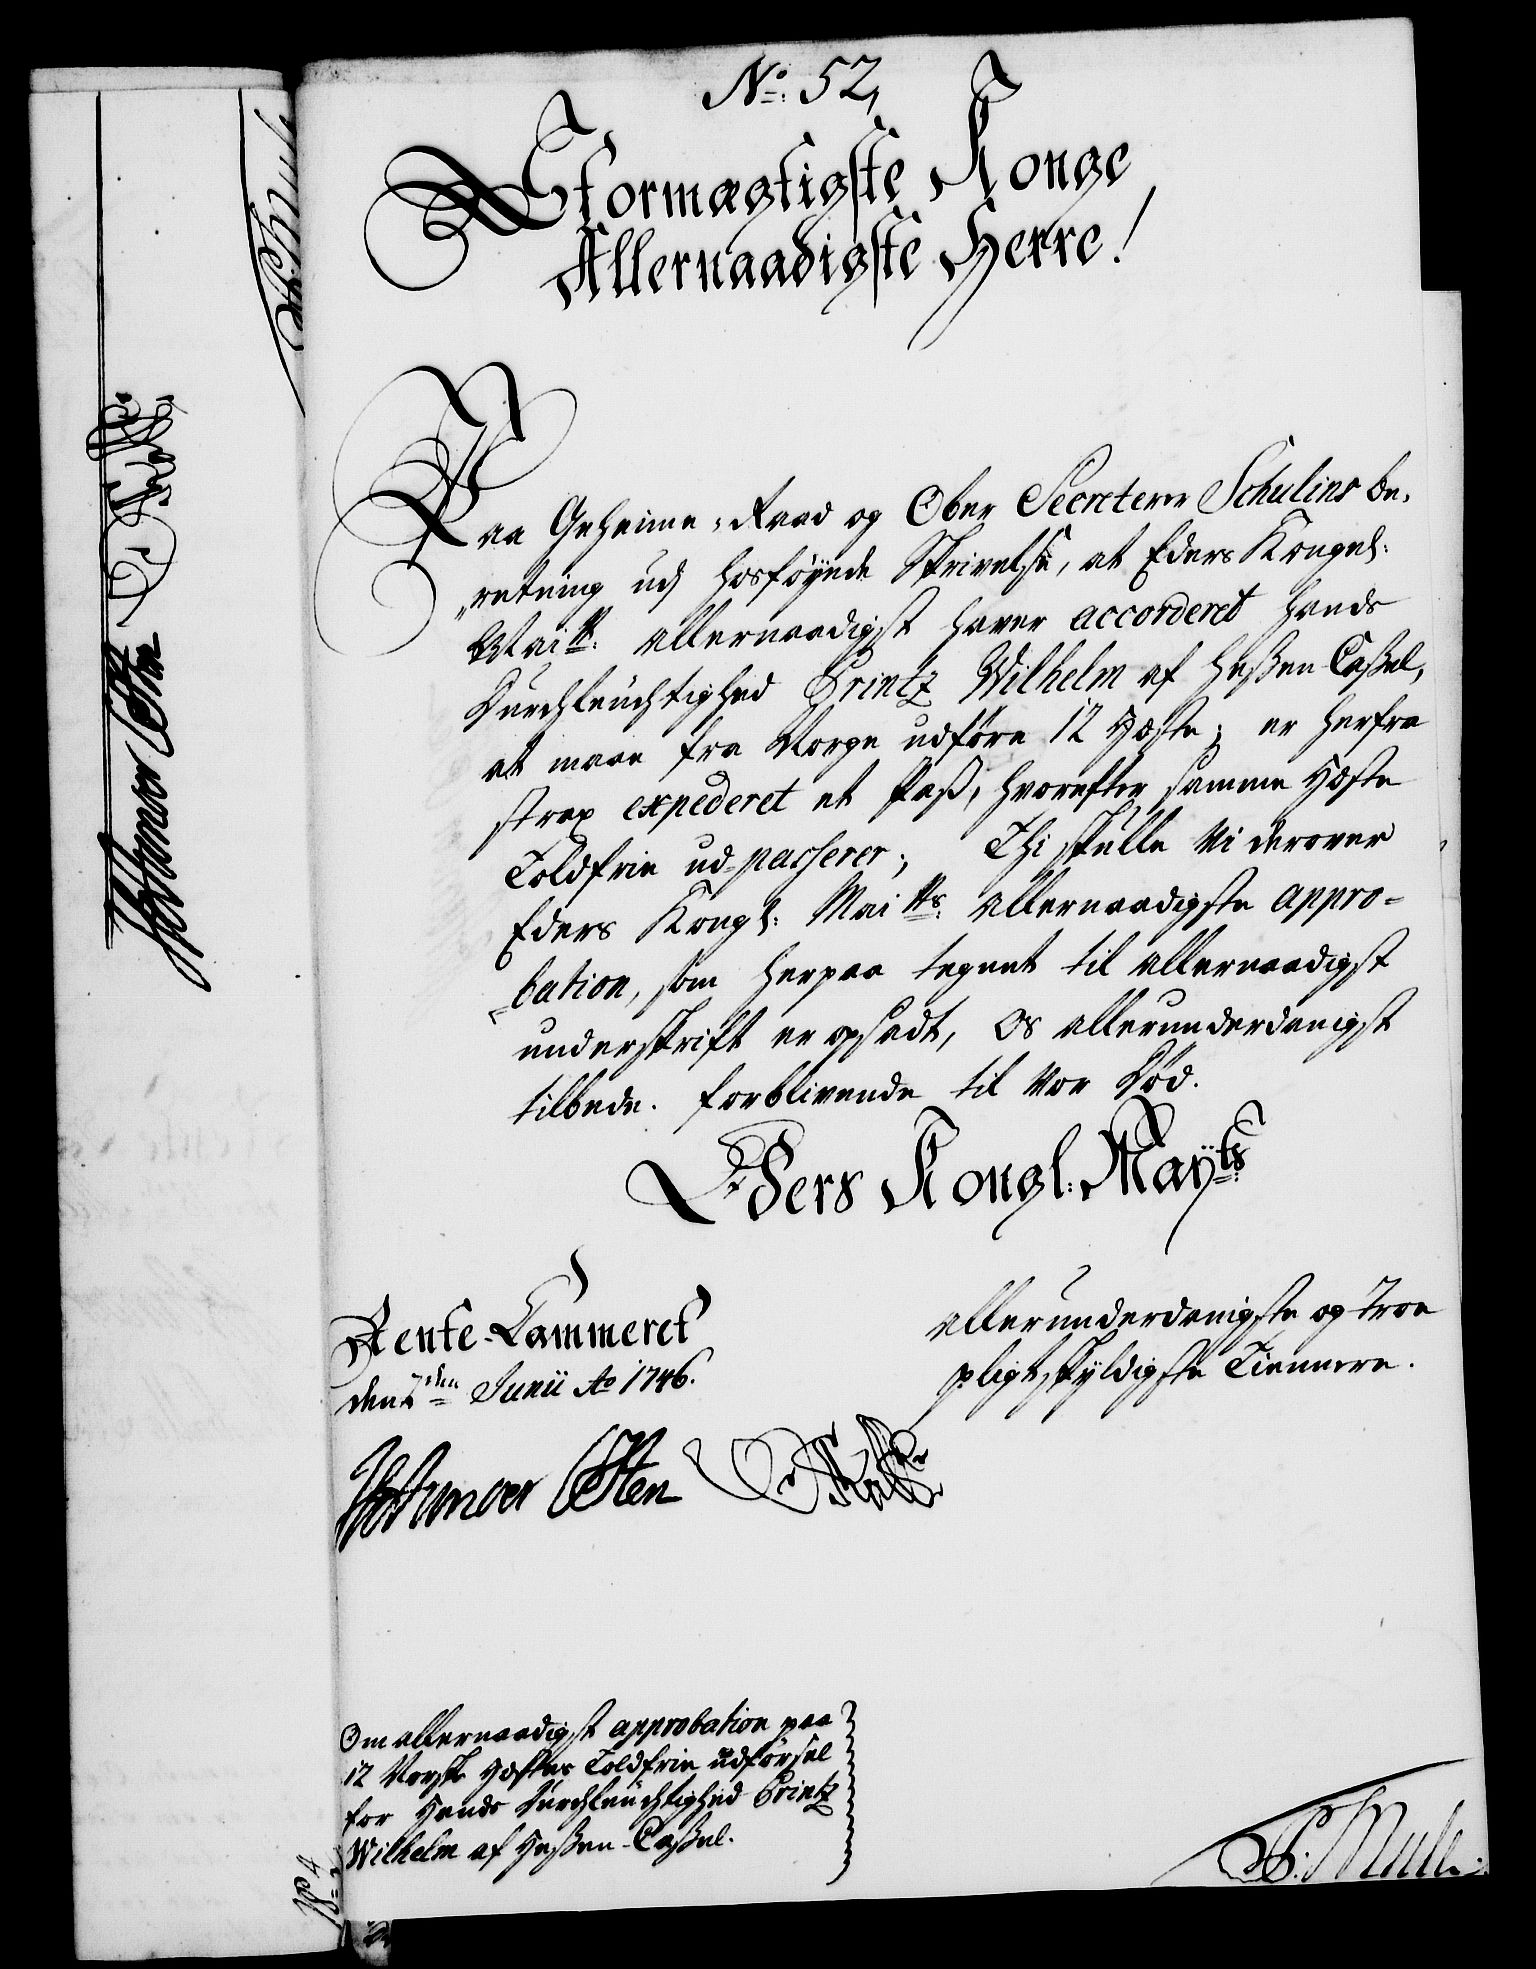 No: 52,
Stormægtigste Konge
Allernaadigste Herre!
Paa Geheime-Raad og Ober Secreterer Schulins be-
retning udj hosføyede Skrivelse, at Eders Kongel:
Maitt: allernaadigst haver accorderet Hands
Durchleuchtighed Printz Wilhelm af Heßen-Caßel,
at maae fra Norge udføre 12 Heste; er herfra
strax expederet et Pass, hvorefter samme Heste
Toldfrie ud-passerer; Thi skulle Vi derover
Eders Kongl: Maitts: allernaadigste appro-
bation, som herpaa tegnet til allernaadigst
underskrift er opsadt, os allerunderdanigst
tilbede. forblivende til vor Død.
Eders Kongl: Mayts:
allerunderdanigste og troe
pligtskyldigste Tiennere.
Rente-Cammeret
den 7den Junii Ao 1746.
Om allernaadigst approbation paa
12 Norske Hestes Toldfrie udførsel
for Hands Durchleuchtighed Printz
Wilhelm af Heßen-Caßel.